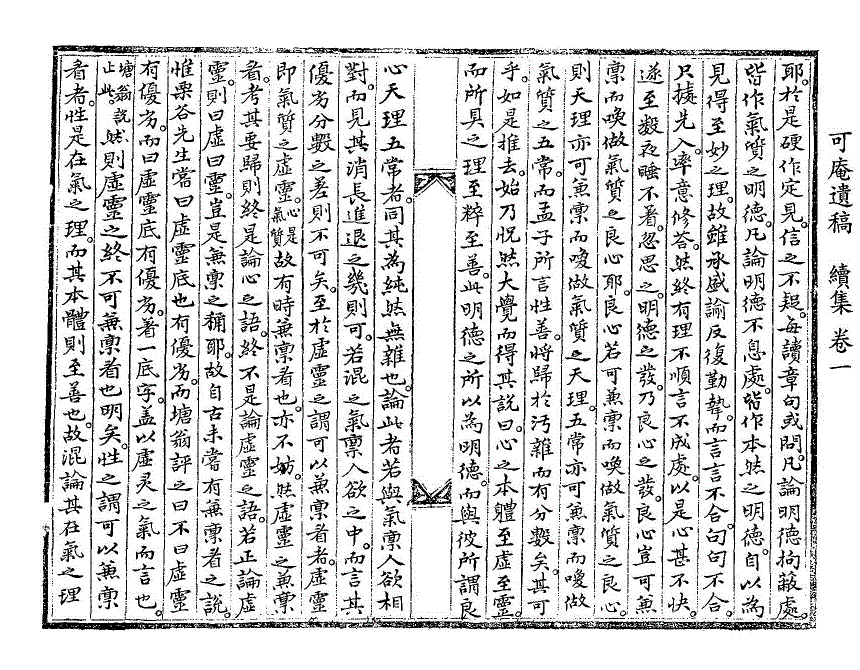 可庵遺稿　續集　卷一
耶。於是硬作定見。信之不疑。每讀章句或問。凡論明德拘蔽處。
皆作氣質之明德。凡論明德不息處。皆作本然之明德。自以爲
見得至妙之理。故雖承盛諭反復勤摯。而言言不合。句句不合。
只據先入。率意修答。然終有理不順言不成處。以是心甚不快。
遂至數夜睡不着。忽思之。明德之發。乃良心之發。良心豈可兼
稟而喚做氣質之良心耶。良心若可兼稟而喚做氣質之良心。
則天理亦可兼稟而喚做氣質之天理。五常亦可兼稟而喚做
氣質之五常。而孟子所言性善。將歸於汚雜而有分數矣。其可
乎。如是推去。始乃怳然大覺而得其說。曰心之本體至虛至靈。
而所具之理至粹至善。此明德之所以爲明德。而與彼所謂良
心天理五常者。同其爲純然無雜也。論此者若與氣稟人欲相
對。而見其消長進退之幾則可。若混之氣稟人欲之中。而言其
優劣分數之差則不可矣。至於虛靈之謂可以兼稟看者。虛靈
卽氣質之虛靈。心是氣質 故有時兼稟者也。亦不妨。然虛靈之兼稟
看。考其要歸則終是論心之語。終不是論虛靈之語。若正論虛
靈。則曰虛曰靈。豈是兼稟之稱耶。故自古未嘗有兼稟者之說。
惟栗谷先生嘗曰虛靈底也有優劣。而塘翁評之曰不曰虛靈
有優劣。而曰虛靈底有優劣。著一底字。盖以虛灵之氣而言也。
塘翁說止此。 然則虛靈之終不可兼稟看也明矣。性之謂可以兼稟
看者。性是在氣之理。而其本體則至善也。故混論其在氣之理